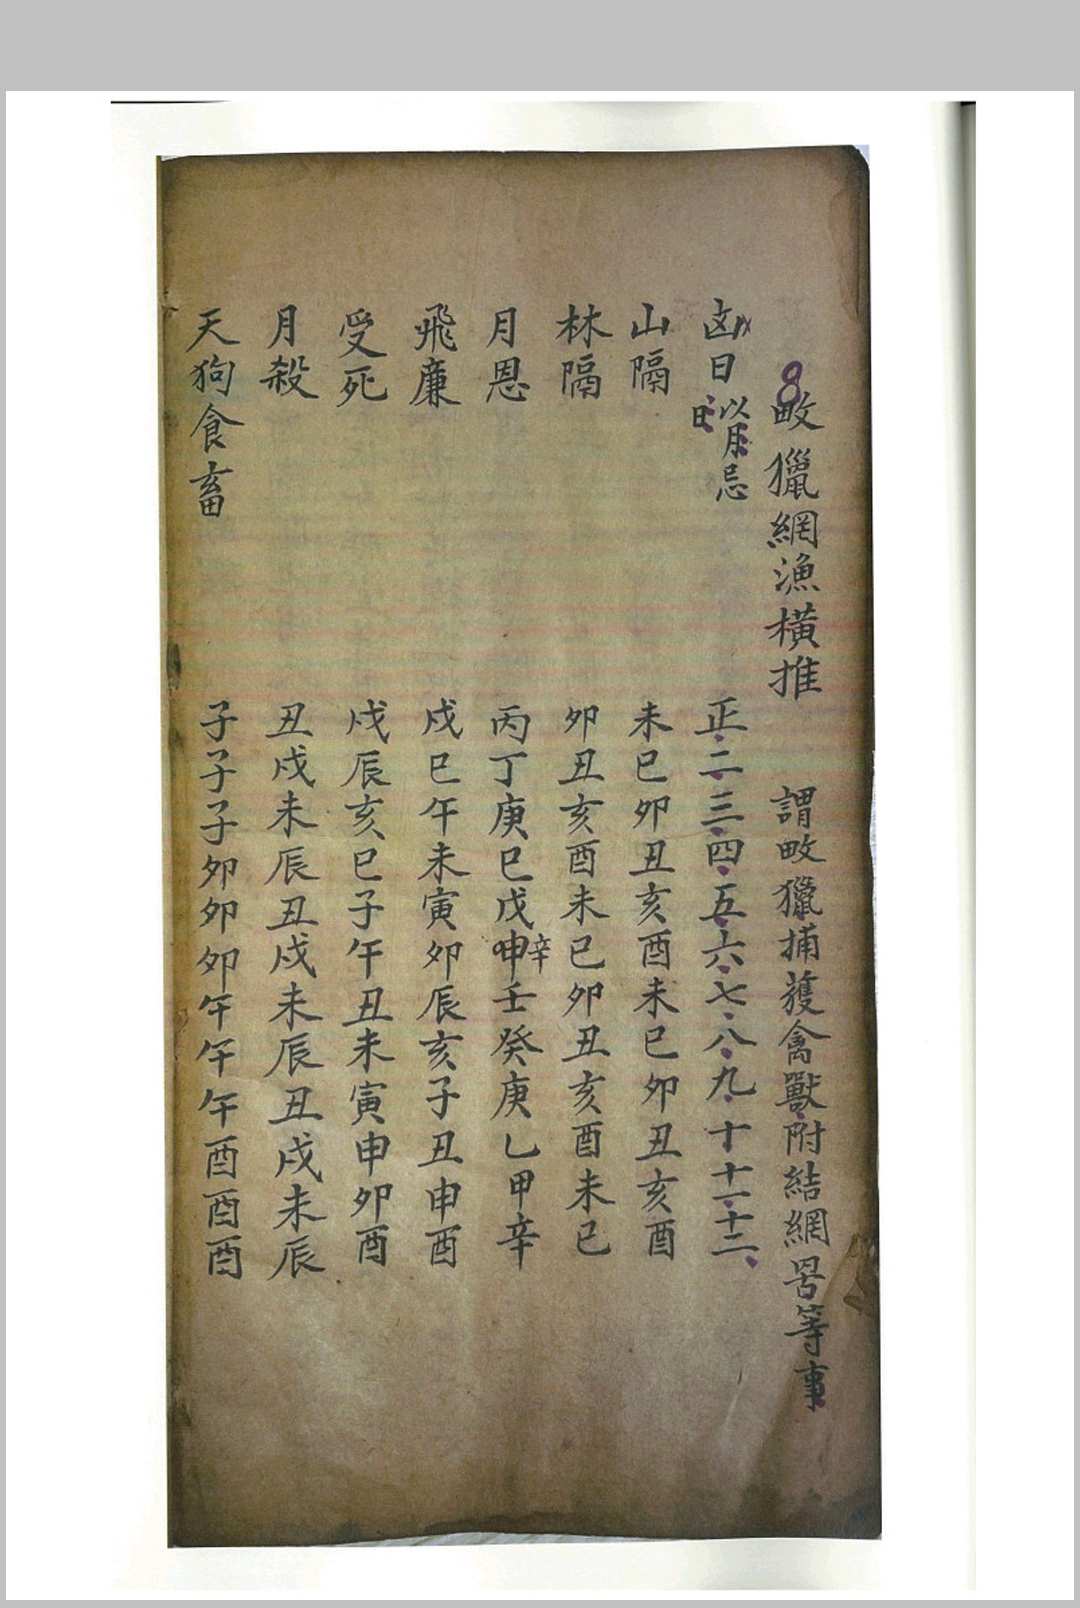 8
畋獵網漁橫推 謂畋獵捕獲禽獸附結網罟等事
凶日 以月忌日 正二三四五六七八九十十一十二
山隔 未巳卯丑亥酉未巳卯丑亥酉
林隔 卯丑亥酉未巳卯丑亥酉未巳
月恩 丙丁庚巳戊申辛壬癸庚乙甲辛
飛廉 戌巳午未寅卯辰亥子丑申酉
受死 戌辰亥巳子午丑未寅申卯酉
月殺 丑戌未辰丑戌未辰丑戌未辰
天狗食畜 子子子卯卯卯午午午酉酉酉